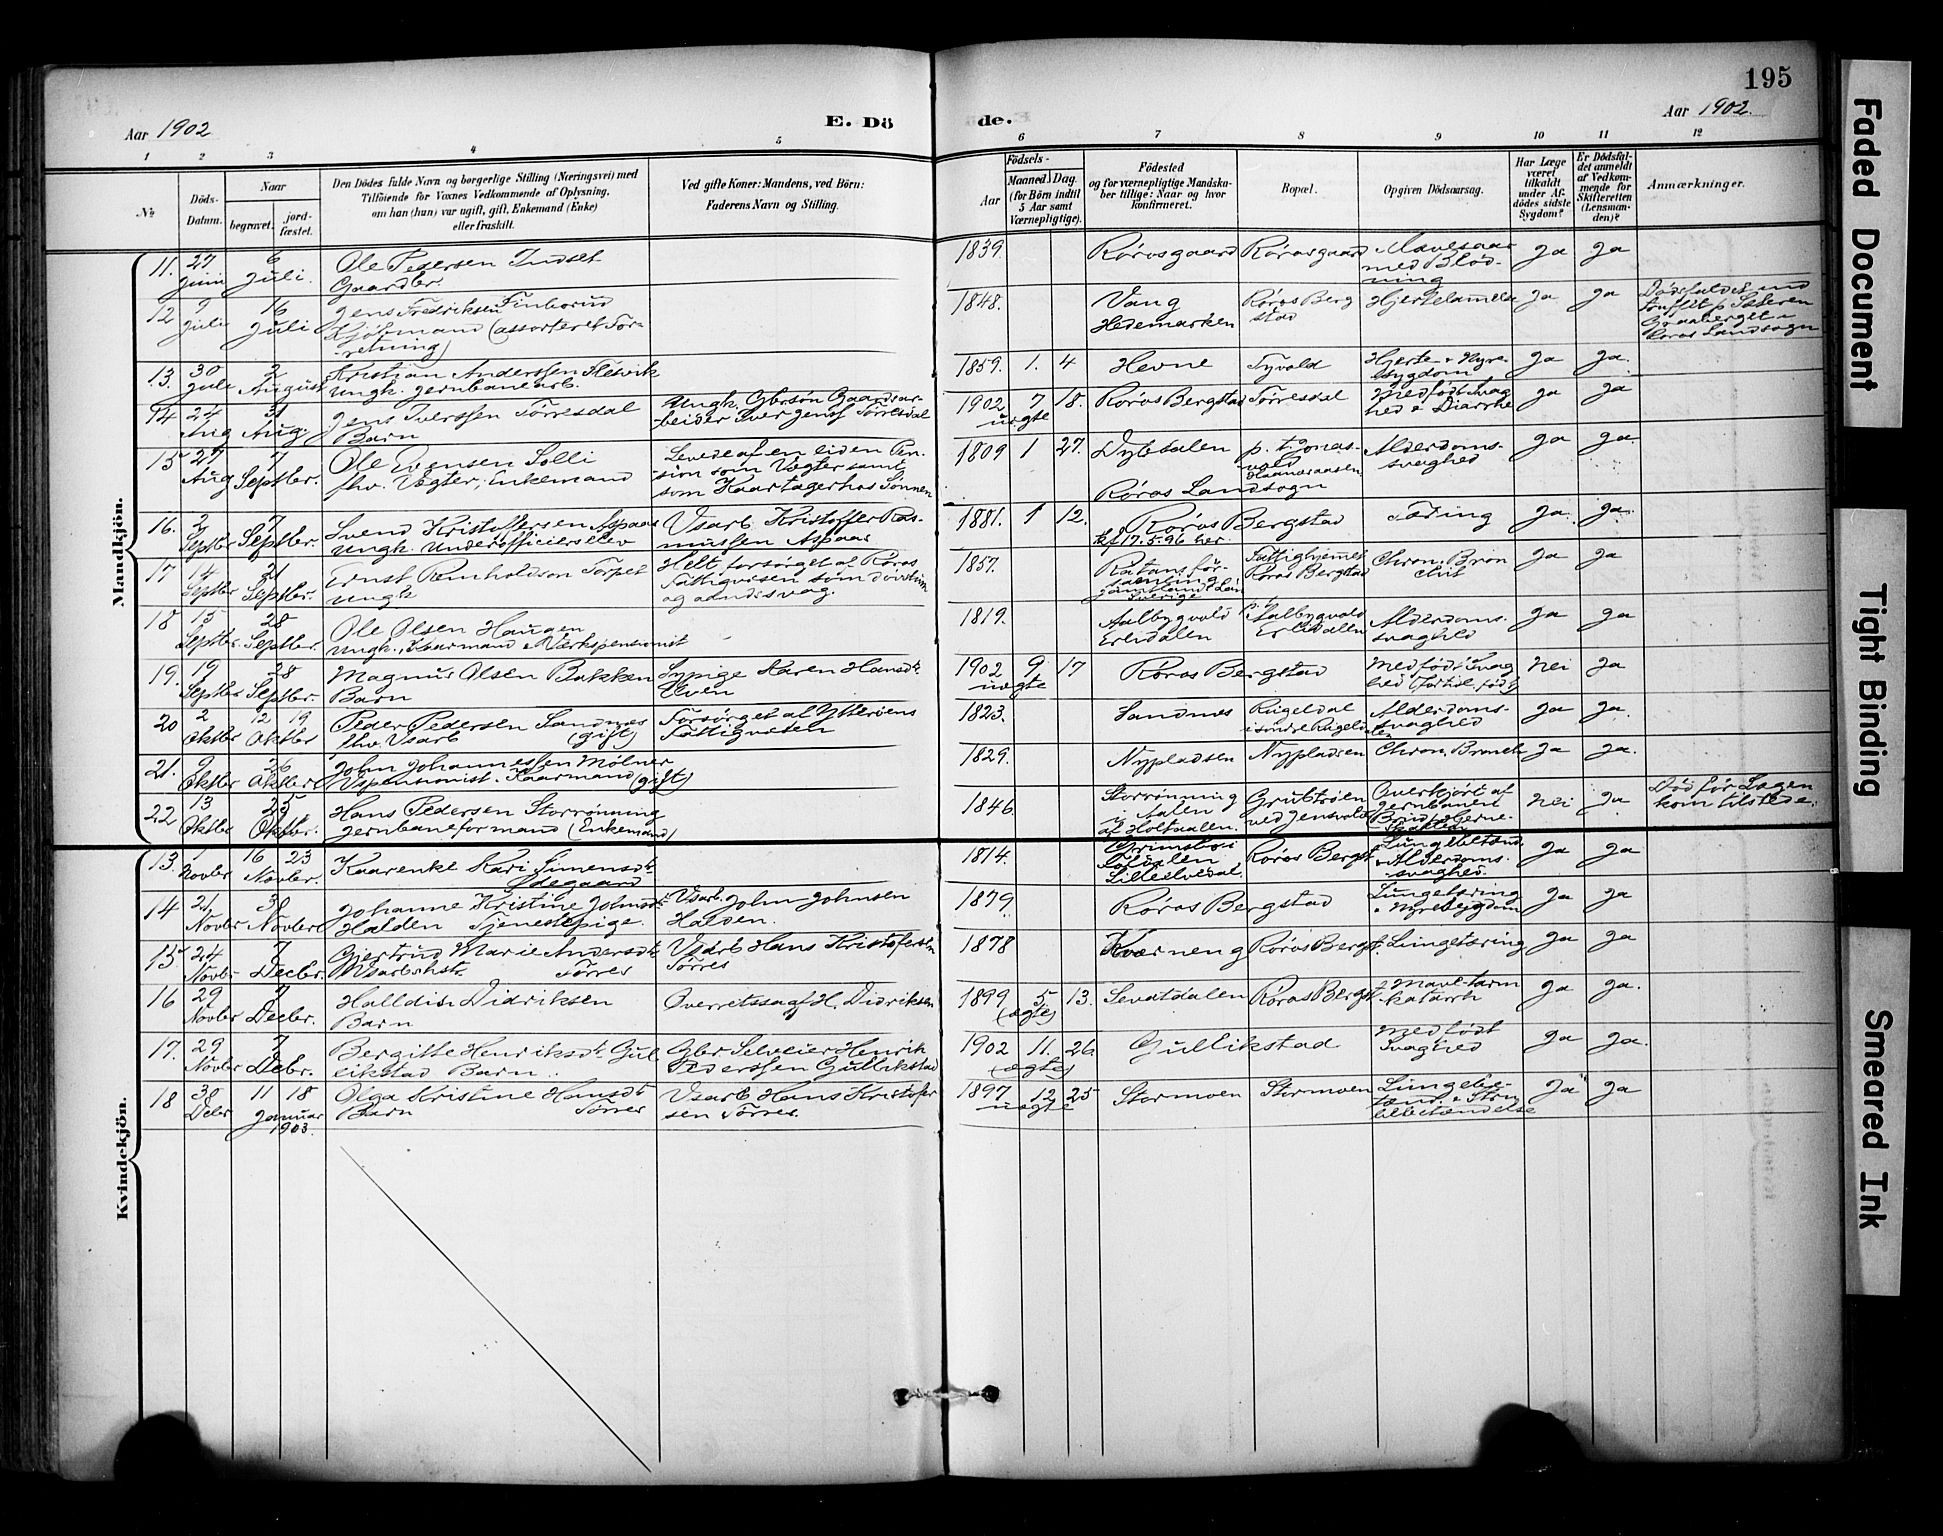 195
Aar 1902
E. Dö
de.
Aar 1902.
1 2 3 4 5 6 7 8 9 10 11 12
№
Döds-
Datum.
Naar
begravet.
jord-
fæstet.
Den Dödes fulde Navn og borgerlige Stilling (Næringsvei) med
Tilföiende for Voxnes Vedkommende af Oplysning,
om han (hun) var ugift, gift, Enkemand (Enke)
eller fraskilt.
Ved gifte Koner: Mandens, ved Börn:
Faderens Navn og Stilling.
Födsels-
Aar
Maaned. Dag.
(for Börn indtil
5 Aar samt
Værnepligtige).
Födested
og for værnepligtige Mandska-
ber tillige: Naar og hvor
konfirmeret.
Bopæl.
Opgiven Dödsaarsag.
Har Læge
været
tilkaldt
under Af-
dödes sidste
Sygdom?
Er Dödsfal-
det anmeldt
af Vedkom-
mende for
Skifteretten
(Lensman-
den)?
Anmærkninger.
Mandkjön.
11. 27 Juni 6 Juli. Ole Pedersen Indset
Gaardbr.
1839. Rørosgaard Rørosgaard Mavesaar
med Blød-
ning Ja Ja
12 9 Juli 16 Juli Jens Fredriksen Finborud
Kjøbmand (assorteret For-
retning)
1848. Vang
Hedemarken Røros Berg
stad Hjertelamelse Ja Ja Dødsfaldet ind
truffet p. Sæteren
Røros Landsogn
13. 30 Juli 2 August Kristian Anderssen Hesvik
Ungk. Jernbanearb.
1859. 1. 4 Hevne Tyvold Hjerte- & Nyre-
sygdom Ja Ja.
14 24 Aug 31 Aug. Jens Iverssen Tørresdal
Barn
Ungk. Gbrsøn Gaardsar-
beider Iver Jensen Tørresdal
1902 7 18. uægte Røros Bergstad Tørresdal Medfødt Svag
hed & Diarrhe Ja Ja
15 27 Aug 7 Septbr. Ole Evensen Solli
fhv. Vegter, Enkemand
Levede af en liden Pen-
sion som Vegter samt
som Kaartager hos Sønnen
1809 1 27. Dybdalen
Røros Landsogn p. t. Jonas-
vold Alderdoms-
svaghed Ja Ja.
16. 2 Septbr 7 Septbr. Svend Kristoffersen Aspaas
Ungk. Underofficierselev
Vsarb. Kristoffer Ras-
mussen Aspaas
1881. 1 12. Røros Bergstad
kf 17.5.96 her. Tæring Ja. Ja.
17 14 Septbr 21 Septbr. Ernst Reinholdson Torpet
Ungk
Helt forsørget af Røros
Fattigvæsen som døvstum
og aandssvag.
1857. Ratans för-
samling
Jämtlands Län
Sverige Fattighjemmet
Røros Bergstad Chron. Bron
chit Ja Ja
18 15 Septbr. 28 Septbr. Ole Olsen Haugen
Ungk., Kaarmand & Værkspensionist
1819. Aalbygvold
Erlidalen Aalbygvold
Erlidalen Alderdoms-
svaghed Ja Ja
19. 19 Septbr 28 Septbr. Magnus Olsen Bakken
Barn
Sypige Karen Hansdtr
Elven
1902 9 17 uægte Røros Bergstad Medfødt Svag
hed (fortid. født) Nei Ja
20 2 Oktbr 12 19 Oktbr Peder Pedersen Sandnes
fhv. Vsarb (gift)
Forsørget af Ytterøens
Fattigvæsen
1823. Sandnes Rugeldal
i søndre Rugeldalen Alderdoms-
svaghed Ja Ja.
21. 9 Oktbr 26 Oktbr John Johannessen Mölner
Vspensionist. Kaarmand (gift)
1829. Nypladsen Nypladsen Chron. Bronch Ja Ja.
22 13 Oktbr 25 Oktbr. Hans Pedersen Storrønning
Jernbaneformand (Enkemand)
1846 Storrønning
i Aalen
af Holtaalen. Grubtrøen
ved Jensvold Overkjørt af
Jernbanen Nei Ja Død før Lægen
kom tilstede.
Kvindekjön.
13. 1 Novbr 16 23 Novbr. Kaarenke Kari Simensdtr
Ødegaard
1814. Grimsbo i
Foldalen
Lilleelvedal Røros Bergst. Lungebetænd.
& Alderdoms-
svaghed. Ja Ja
14 21 Novbr 30 Novbr Johanne Kristine Johnsdtr
Halden Tjenestepige.
Vsarb. John Johnsen
Halden.
1879. Røros Bergstad Lungetæring
& Nyresygdom Ja Ja
15 24 Novbr 7 Decbr. Gjertrud Marie Andersdtr
Vsarbshstr Tørres
Vsarb Hans Kristofersen
Tørres
1878 Kværneng Røros Bergst. Lungetæring Ja Ja
16 29 Novbr 7 Decbr. Halldis Didriksen
Barn
Overretssagf. H. Didriksen
1899 5 13. (ægte) Sevatdalen Røros Bergst Mave-tarm
katarrh Ja Ja.
17. 29 Novbr 7 Debr. Bergitte Henriksdtr Gul
likstad Barn
Gbr Selveier Henrik
Pederssen Gullikstad
1902 11. 26 (ægte) Gullikstad Medfødt
Svaghed Ja Ja.
18 30 Decbr 11 18 Januar
1903. Olga Kristine Hansdtr
Barn Tørres
Vsarb Hans Kristofer
sen Tørres.
1897 12 25 uægte Stormoen Stormoen Lungebe-
tænd. Ja Ja
Faded Document
Tight Binding
Smeared Ink